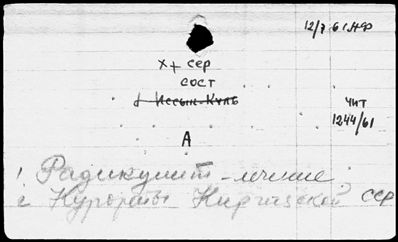 12/7 61 НФ
х+ сер
сост
г Иссык-Куль
чит
1244/61
А
1 Радикулит - лечение
2 Курорты Киргизской сср